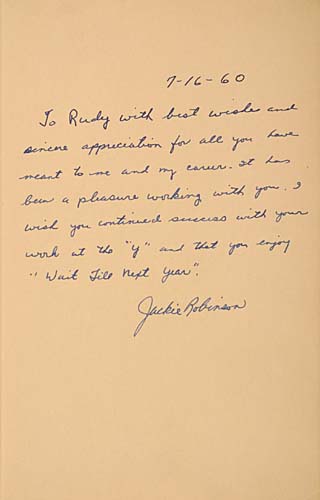 7-16-60
To Rudy with best wishes and
sincere appreciation for all you have
meant to me and my career. It has
been a pleasure working with you. I
wish you continued success with your
work at the "Y" and that you enjoy
"Wait Till Next Year".
Jackie Robinson